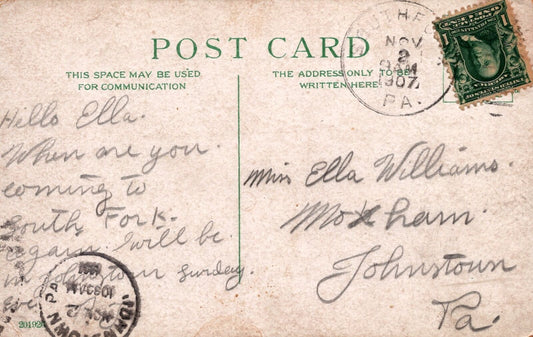 POST CARD
THIS SPACE MAY BE USED
FOR COMMUNICATION
THE ADDRESS ONLY TO BE
WRITTEN HERE
NOV
2
1907
PA.
Hello Ella.
When are you
coming to
South Fork.
again. Will be
in Johnstown Sunday.
Eve
Miss Ella Williams.
Moxham.
Johnstown
Pa.
JOHNSTOWN PA
NOV 2
1030AM